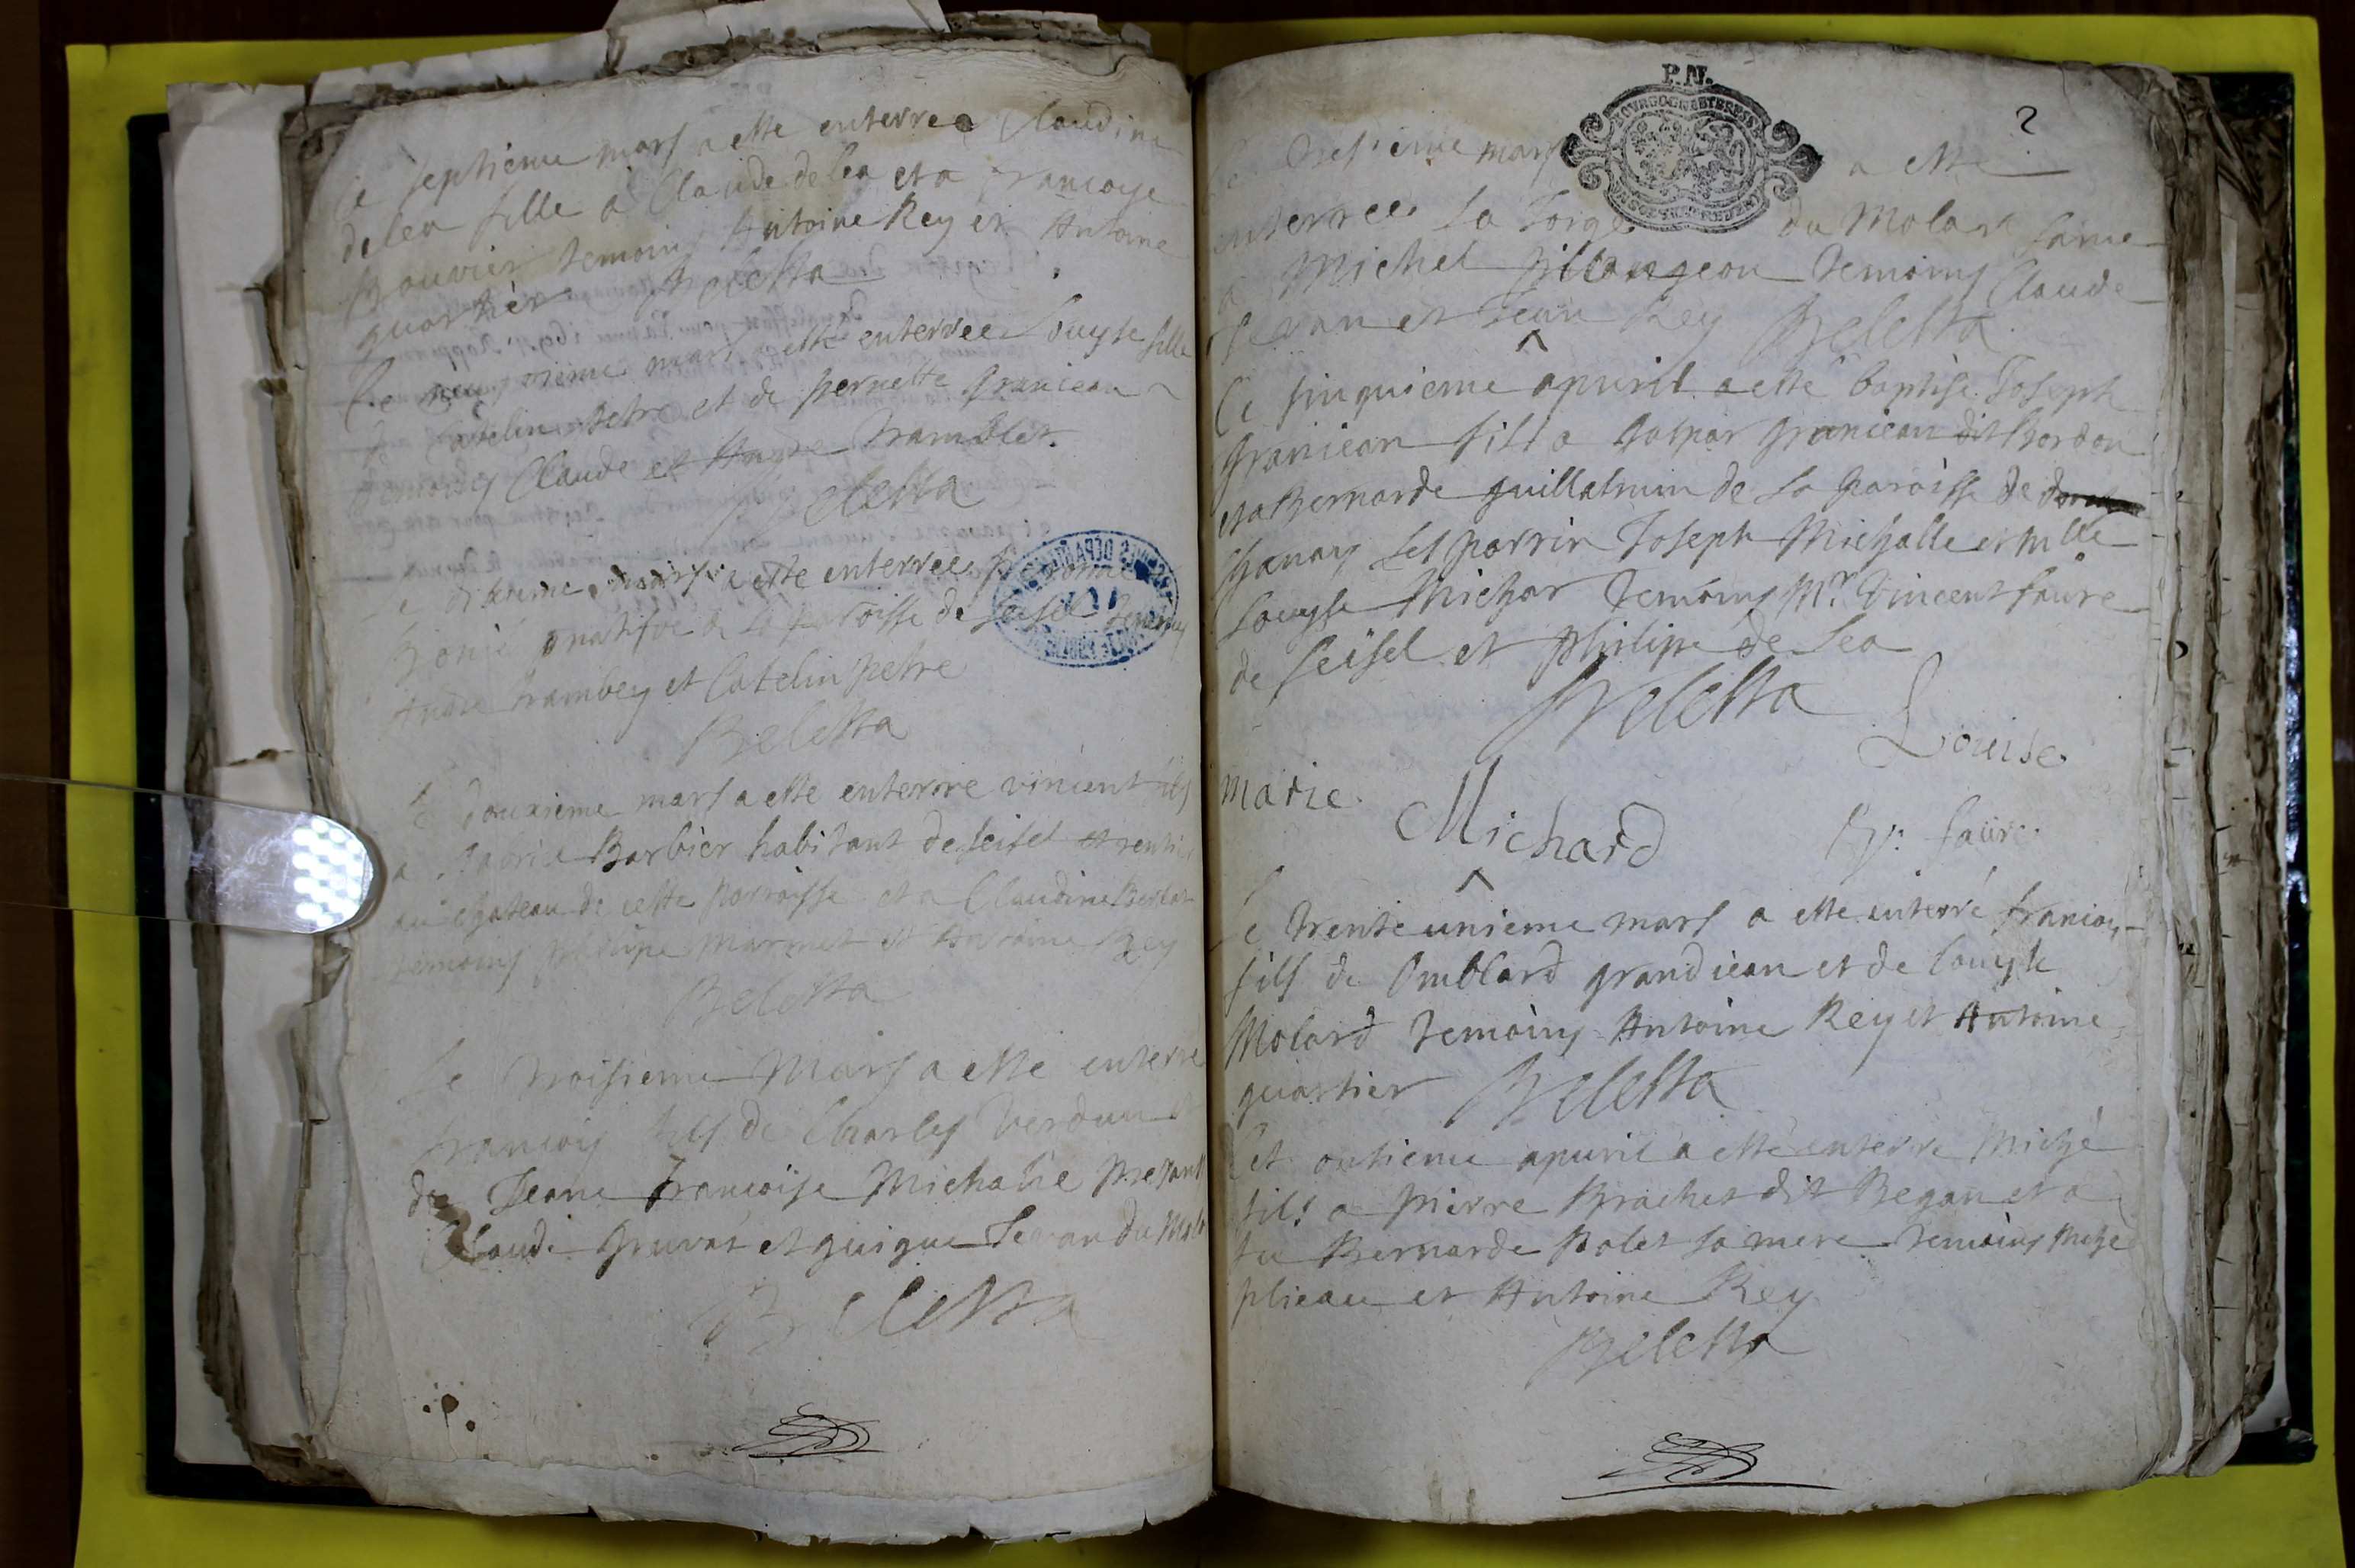 Le septieme mars a este enterree Claudine
delea fille a Claude delea et a francoyse
Bouvier temoins Antoine Rey et Antoine
quartier Beletta
Le mars a este enterree Louyse fille
a Catelin petre et de pernette granieau
temoins Claude et Andre Tramblet
Beletta
Le dixieme mars a este enterree
de la paroisse de seisel temoins
Andre trambley et Catelin petre
Beletta
Le douzieme mars a este enterre vincent fils
a Barbier habitant de seisel et rentier
au chateau de cette parroisse et a Claudine
temoins philipe marmet et Antoine Rey
Beletta
Le troisieme Mars a este enterre
francois fils de Charles Verdun et
de Jeane francoise Michalie presant
Claude gruvat et guigue Jevan du
Beletta
P.N.
2
Le mars a este
enterree la du Molar fame
a Michel temoins Claude
Jevan et Jean Rey Beletta
Le sinquieme apvril a este baptise Joseph
granieau fils a gaspar granieau dit Bordon
et a Bernarde de la paroisse de
chanay les parrin Joseph Michalle et mlle
Louyse Michar temoins Mr. Vincent faure
de seisel et philipe de lea
Beletta
Louise
marie
Michard
faure
Le trente unieme mars a este enterré francois
fils de grandiean et de Louyse
Molard temoins Antoine Rey et Antoine
quartier Beletta
Cet ontieme apvril a este enterre Miché
fils a pierre Brachet dit Began et a
Bernarde Bolet sa mere temoins Miche
plieau et Antoine Rey
Beletta